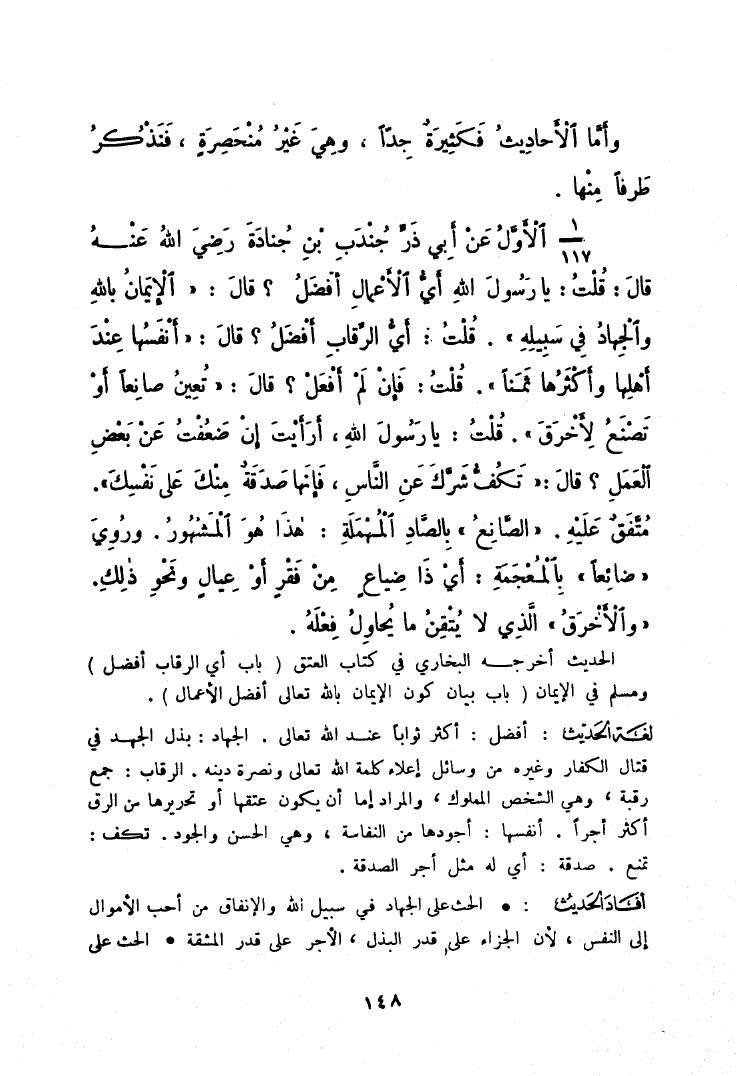 وأَمَّا ٱلْأَحادِيثُ فَكَثِيرَةٌ جِدّاً ، وهِيَ غَيْرُ مُنْحَصِرَةٍ ، فَنَذْكُرُ
طَرفاً مِنْها .
١/١١٧ ٱلْأَوَّلُ عَنْ أَبِي ذَرٍّ جُنْدَبِ بْنِ جُنادَةَ رَضِيَ اللهُ عَنْهُ
قالَ : قُلْتُ : يا رَسُولَ اللهِ أَيُّ ٱلْأَعْمالِ أَفْضَلُ ؟ قالَ : « ٱلْإِيمَانُ بِاللهِ
وٱلْجِهادُ فِي سَبِيلِهِ » . قُلْتُ : أَيُّ الرِّقابِ أَفْضَلُ ؟ قالَ : « أَنْفَسُها عِنْدَ
أَهْلِها وأَكْثَرُها ثَمَناً » . قُلْتُ : فَإِنْ لَمْ أَفْعَلْ ؟ قالَ : « تُعِينُ صانِعاً أَوْ
تَصْنَعُ لِأَخْرَقَ » . قُلْتُ : يا رَسُولَ اللهِ ، أَرَأَيْتَ إِنْ ضَعُفْتُ عَنْ بَعْضِ
ٱلْعَمَلِ ؟ قالَ : « تَكُفُّ شَرَّكَ عَنِ النَّاسِ ، فَإِنَّها صَدَقَةٌ مِنْكَ عَلى نَفْسِكَ » .
مُتَّفَقٌ عَلَيْهِ . « الصَّانِعُ » بِالصَّادِ ٱلْمُهْمَلَةِ : هٰذَا هُوَ ٱلْمَشْهُورُ . ورُوِيَ
« ضائِعاً » بِٱلْمُعْجَمَةِ : أَيْ ذَا ضِياعٍ مِنْ فَقْرٍ أَوْ عِيالٍ ونَحْوِ ذٰلِكَ .
« وٱلْأَخْرَقُ » الَّذِي لا يُتْقِنُ ما يُحاوِلُ فِعْلَهُ .
الحديث أخرجـه البخاري في كتاب العتق ( باب أي الرقاب أفضل )
ومسلم في الإيمان ( باب بيان كون الإيمان بالله تعالى أفضل الأعمال ) .
لغة الحديث : أفضل : أكثر ثواباً عند الله تعالى . الجهاد : بذل الجهد في
قتال الكفار وغيره من وسائل إعلاء كلمة الله تعالى ونصرة دينه . الرقاب : جمع
رقبة ، وهي الشخص المملوك ، والمراد إما أن يكون عتقها أو تحريرها من الرق
أكثر أجراً . أنفسها : أجودها من النفاسة ، وهي الحسن والجود . تكف :
تمنع . صدقة : أي له مثل أجر الصدقة .
أفاد الحديث : • الحث على الجهاد في سبيل الله والإنفاق من أحب الأموال
إلى النفس ، لأن الجزاء على قدر البذل ، الأجر على قدر المشقة • الحث على
١٤٨